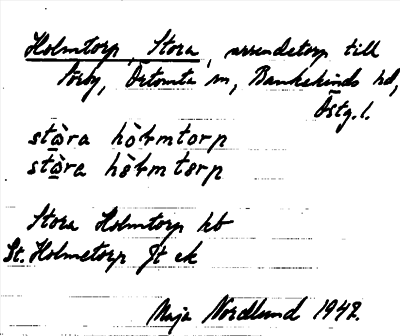 Holmtorp, Stora, arrendetorp till
Störby, Örtomta sn, Bankekinds hd,
Östg. l.
stὼra hòłmtorp
stὼra hòłmtorp
Stora Holmtorp hb
St. Holmetorp Jt ek
Maja Nordlund 1942.